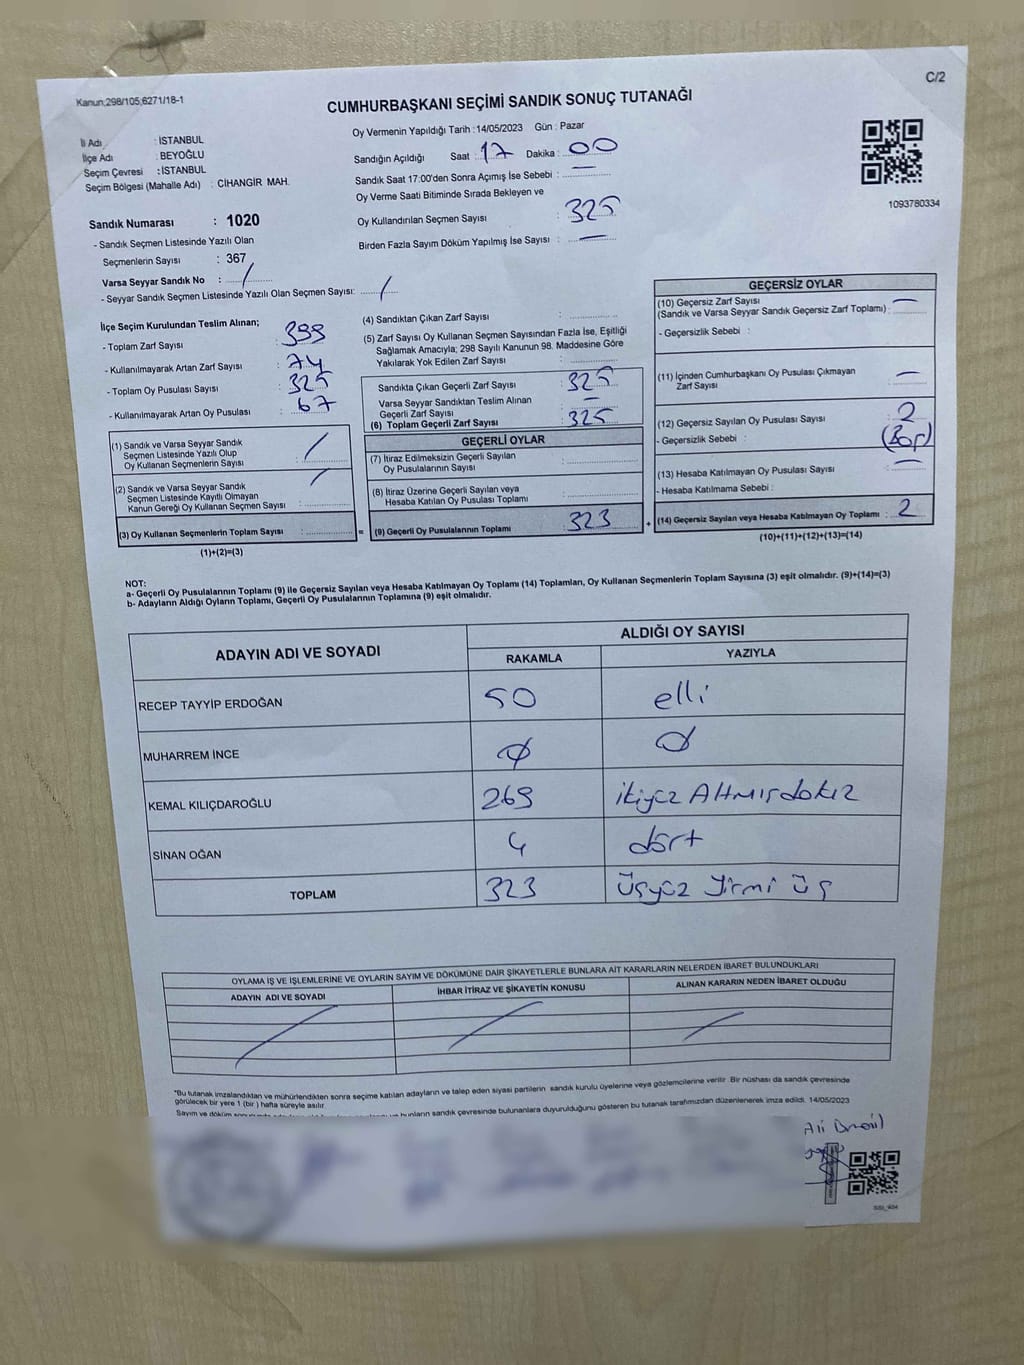 Kanun;298/105;6271/18-1
C/2
CUMHURBAŞKANI SEÇİMİ SANDIK SONUÇ TUTANAĞI
İl Adı : İSTANBUL
İlçe Adı : BEYOĞLU
Seçim Çevresi : İSTANBUL
Seçim Bölgesi (Mahalle Adı) : CİHANGİR MAH.
Sandık Numarası : 1020
- Sandık Seçmen Listesinde Yazılı Olan
Seçmenlerin Sayısı : 367
Varsa Seyyar Sandık No : /
- Seyyar Sandık Seçmen Listesinde Yazılı Olan Seçmen Sayısı: /
Oy Vermenin Yapıldığı Tarih : 14/05/2023 Gün : Pazar
Sandığın Açıldığı Saat : 17 Dakika : 00
Sandık Saat 17:00'den Sonra Açımış İse Sebebi : —
Oy Verme Saati Bitiminde Sırada Bekleyen ve
Oy Kullandırılan Seçmen Sayısı : 325
Birden Fazla Sayım Döküm Yapılmış İse Sayısı : —
1093780334
İlçe Seçim Kurulundan Teslim Alınan;
- Toplam Zarf Sayısı : 399
- Kullanılmayarak Artan Zarf Sayısı : 74
- Toplam Oy Pusulası Sayısı : 325
- Kullanılmayarak Artan Oy Pusulası : 67
(1) Sandık ve Varsa Seyyar Sandık
Seçmen Listesinde Yazılı Olup
Oy Kullanan Seçmenlerin Sayısı : /
(2) Sandık ve Varsa Seyyar Sandık
Seçmen Listesinde Kayıtlı Olmayan
Kanun Gereği Oy Kullanan Seçmen Sayısı : /
(3) Oy Kullanan Seçmenlerin Toplam Sayısı :
(1)+(2)=(3)
(4) Sandıktan Çıkan Zarf Sayısı :
(5) Zarf Sayısı Oy Kullanan Seçmen Sayısından Fazla İse, Eşitliği
Sağlamak Amacıyla; 298 Sayılı Kanunun 98. Maddesine Göre
Yakılarak Yok Edilen Zarf Sayısı :
Sandıkta Çıkan Geçerli Zarf Sayısı : 325
Varsa Seyyar Sandıktan Teslim Alınan
Geçerli Zarf Sayısı : —
(6) Toplam Geçerli Zarf Sayısı : 325
GEÇERLİ OYLAR
(7) İtiraz Edilmeksizin Geçerli Sayılan
Oy Pusulalarının Sayısı :
(8) İtiraz Üzerine Geçerli Sayılan veya
Hesaba Katılan Oy Pusulası Toplamı :
= (9) Geçerli Oy Pusulalarının Toplamı : 323
GEÇERSİZ OYLAR
(10) Geçersiz Zarf Sayısı
(Sandık ve Varsa Seyyar Sandık Geçersiz Zarf Toplamı) : —
- Geçersizlik Sebebi :
(11) İçinden Cumhurbaşkanı Oy Pusulası Çıkmayan
Zarf Sayısı : —
(12) Geçersiz Sayılan Oy Pusulası Sayısı : 2
- Geçersizlik Sebebi : (Boş)
(13) Hesaba Katılmayan Oy Pusulası Sayısı : —
- Hesaba Katılmama Sebebi :
+ (14) Geçersiz Sayılan veya Hesaba Katılmayan Oy Toplamı : 2
(10)+(11)+(12)+(13)=(14)
NOT:
a- Geçerli Oy Pusulalarının Toplamı (9) ile Geçersiz Sayılan veya Hesaba Katılmayan Oy Toplamı (14) Toplamları, Oy Kullanan Seçmenlerin Toplam Sayısına (3) eşit olmalıdır. (9)+(14)=(3)
b- Adayların Aldığı Oyların Toplamı, Geçerli Oy Pusulalarının Toplamına (9) eşit olmalıdır.
ADAYIN ADI VE SOYADI ALDIĞI OY SAYISI
RAKAMLA YAZIYLA
RECEP TAYYİP ERDOĞAN 50 elli
MUHARREM İNCE Ø Ø
KEMAL KILIÇDAROĞLU 269 ikiyüz Altmışdokuz
SİNAN OĞAN 4 dört
TOPLAM 323 Üçyüz Yirmi Üç
OYLAMA İŞ VE İŞLEMLERİNE VE OYLARIN SAYIM VE DÖKÜMÜNE DAİR ŞİKAYETLERLE BUNLARA AİT KARARLARIN NELERDEN İBARET BULUNDUKLARI
ADAYIN ADI VE SOYADI İHBAR İTİRAZ VE ŞİKAYETİN KONUSU ALINAN KARARIN NEDEN İBARET OLDUĞU
*Bu tutanak imzalandıktan ve mühürlendikten sonra seçime katılan adayların ve talep eden siyasi partilerin sandık kurulu üyelerine veya gözlemcilerine verilir. Bir nüshası da sandık çevresinde
görülecek bir yere 1 (bir) hafta süreyle asılır.
Sayım ve döküm bunların sandık çevresinde bulunanlara duyurulduğunu gösteren bu tutanak tarafımızdan düzenlenerek imza edildi. 14/05/2023
Ali